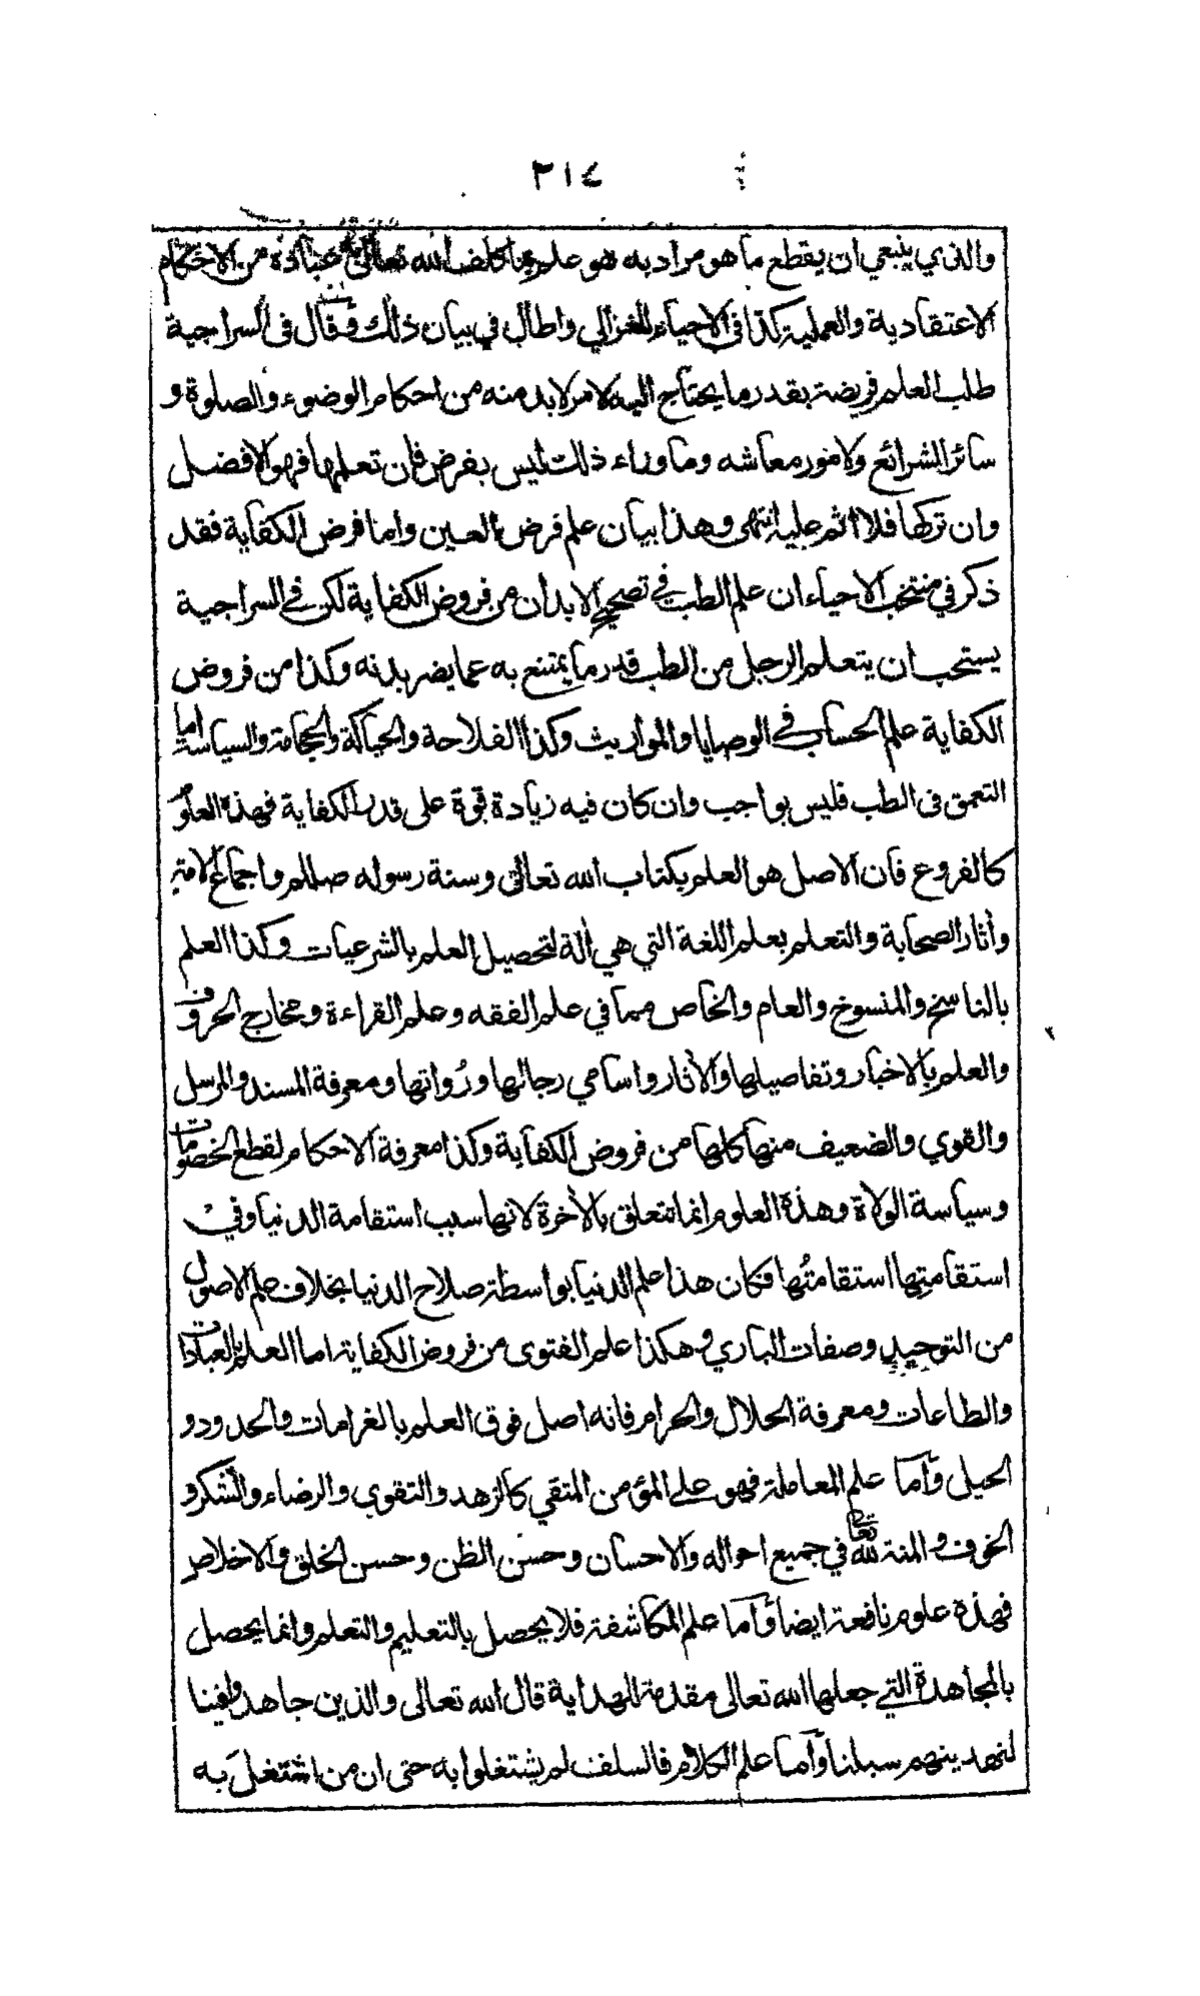 ٣١٤
والذي ينبغي ان يقطع ما هو مراد به هو علم بما كلف الله تعالى عباده من الاحكام
الاعتقادية والعملية كذا فى الاحياء للغزالي واطال في بيان ذلك وقال فى السراجية
طلب العلم فريضة بقدر ما يحتاج اليه لامر لابد منه من احكام الوضوء والصلوة و
سائر الشرائع ولامور معاشه وما وراء ذلك ليس بفرض فان تعلمها فهو الافضل
وان تركها فلا اثم عليه انتهى وهذا بيان علم فرض العين واما فرض الكفاية فقد
ذكر في منتخب الاحياء ان علم الطب في تصحيح الابدان من فروض الكفاية لكن في السراجية
يستحب ان يتعلم الرجل من الطب قدر ما يمتنع به عما يضر بدنه وكذا من فروض
الكفاية علم الحساب في الوصايا والمواريث وكذا الفلاحة والحياكة والحجامة والسياسة اما
التعمق فى الطب فليس بواجب وان كان فيه زيادة قوة على قدر الكفاية فهذه العلوم
كالفروع فان الاصل هو العلم بكتاب الله تعالى وسنة رسوله صللم واجماع الامة
وأثار الصحابة والتعلم بعلم اللغة التي هي ألة لتحصيل العلم بالشرعيات وكذا العلم
بالناسخ والمنسوخ والعام والخاص مما في علم الفقه وعلم القراءة ومخارج الحروف
والعلم بالاخبار وتفاصيلها والأثار واسامي رجالها ورُواتها ومعرفة المسند والمرسل
والقوي والضعيف منها كلها من فروض الكفاية وكذا معرفة الاحكام لقطع الخصومات
وسياسة الولاة وهذه العلوم انما تتعلق بالأخرة لانها سبب استقامة الدنيا وفي
استقامتِها استقامتُها فكان هذا علم الدنيا بواسطة صلاح الدنيا بخلاف علم الاصول
من التوحيد وصفات الباري وهكذا علم الفتوى من فروض الكفاية اما العلم بالعبادات
والطاعات ومعرفة الحلال والحرام فانه اصل فوق العلم بالغرامات والحدود و
الحيل وأما علم المعاملة فهو على المؤمن المتقي كالزهد والتقوى والرضاء والشكر و
الخوف والمنة لله تعالى في جميع احواله والاحسان وحسن الظن وحسن الخلق والاخلاص
فهذه علوم نافعة ايضا وأما علم المكاشفة فلا يحصل بالتعليم والتعلم وانما يحصل
بالمجاهدة التي جعلها الله تعالى مقدمة للهداية قال الله تعالى والذين جاهدوا فينا
لنهدينهم سبلنا وأما علم الكلام فالسلف لم يشتغلوا به حتى ان من اشتغل به